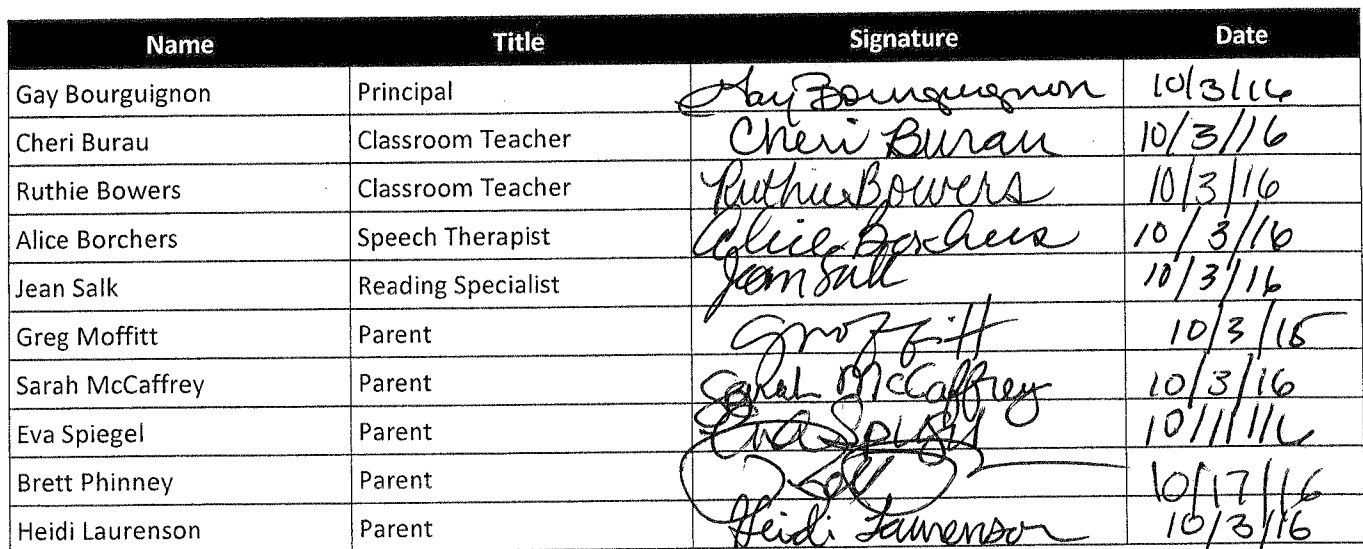 Name Title Signature Date
Gay Bourguignon Principal Gay Bourguignon 10/3/16
Cheri Burau Classroom Teacher Cheri Burau 10/3/16
Ruthie Bowers Classroom Teacher Ruthie Bowers 10/3/16
Alice Borchers Speech Therapist Alice Borchers 10/3/16
Jean Salk Reading Specialist Jean Salk 10/3/16
Greg Moffitt Parent 10/3/15
Sarah McCaffrey Parent Sarah McCaffrey 10/3/16
Eva Spiegel Parent Eva Spiegel 10/11/16
Brett Phinney Parent 10/17/16
Heidi Laurenson Parent Heidi Laurenson 10/3/16